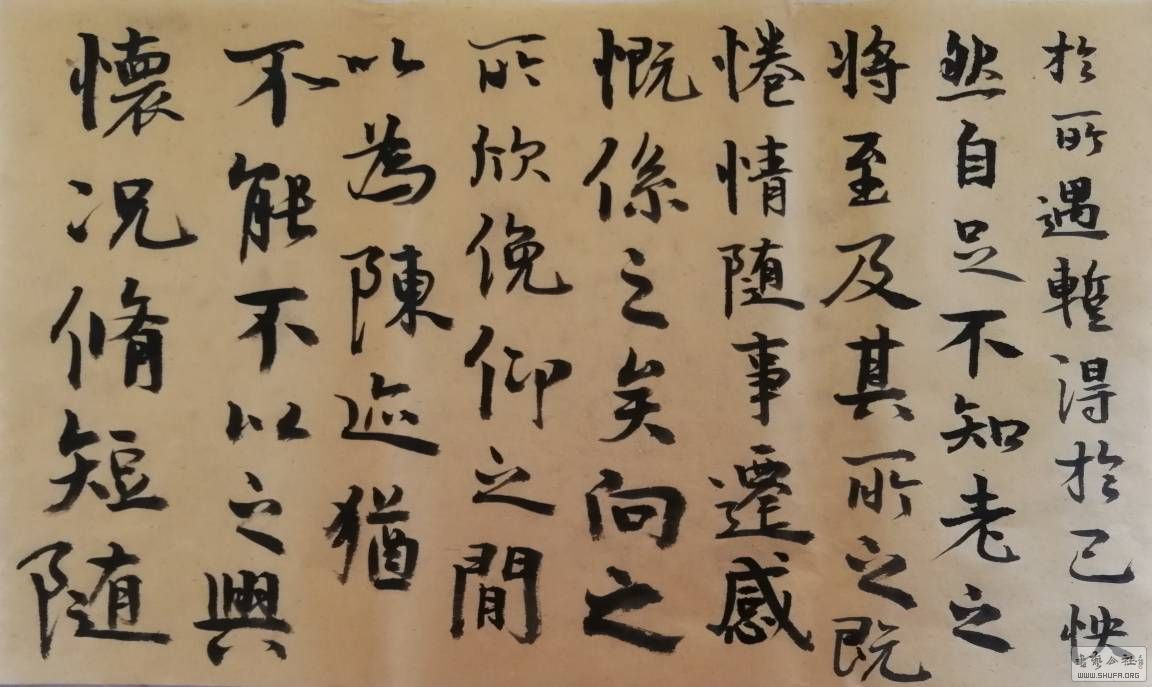 於所遇暫得於己怏
然自足不知老之
將至及其所之既
惓情隨事遷感
慨係之矣向之
所欣俛仰之間
以為陳迹猶
不能不以之興
懷況脩短隨
WWW.SHUFA.ORG